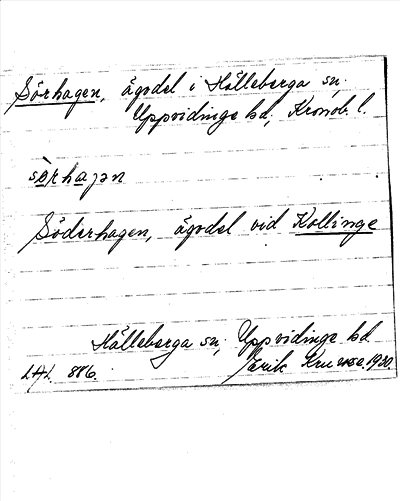 Sörhagen, ägodel i Hälleberga sn;
Uppvidinge hd, Kronob. l.
sòrhagən
Söderhagen, ägodel vid Kollinge
Hälleberga sn, Uppvidinge hd
LAL. 886. Erik Kruuse. 1930.